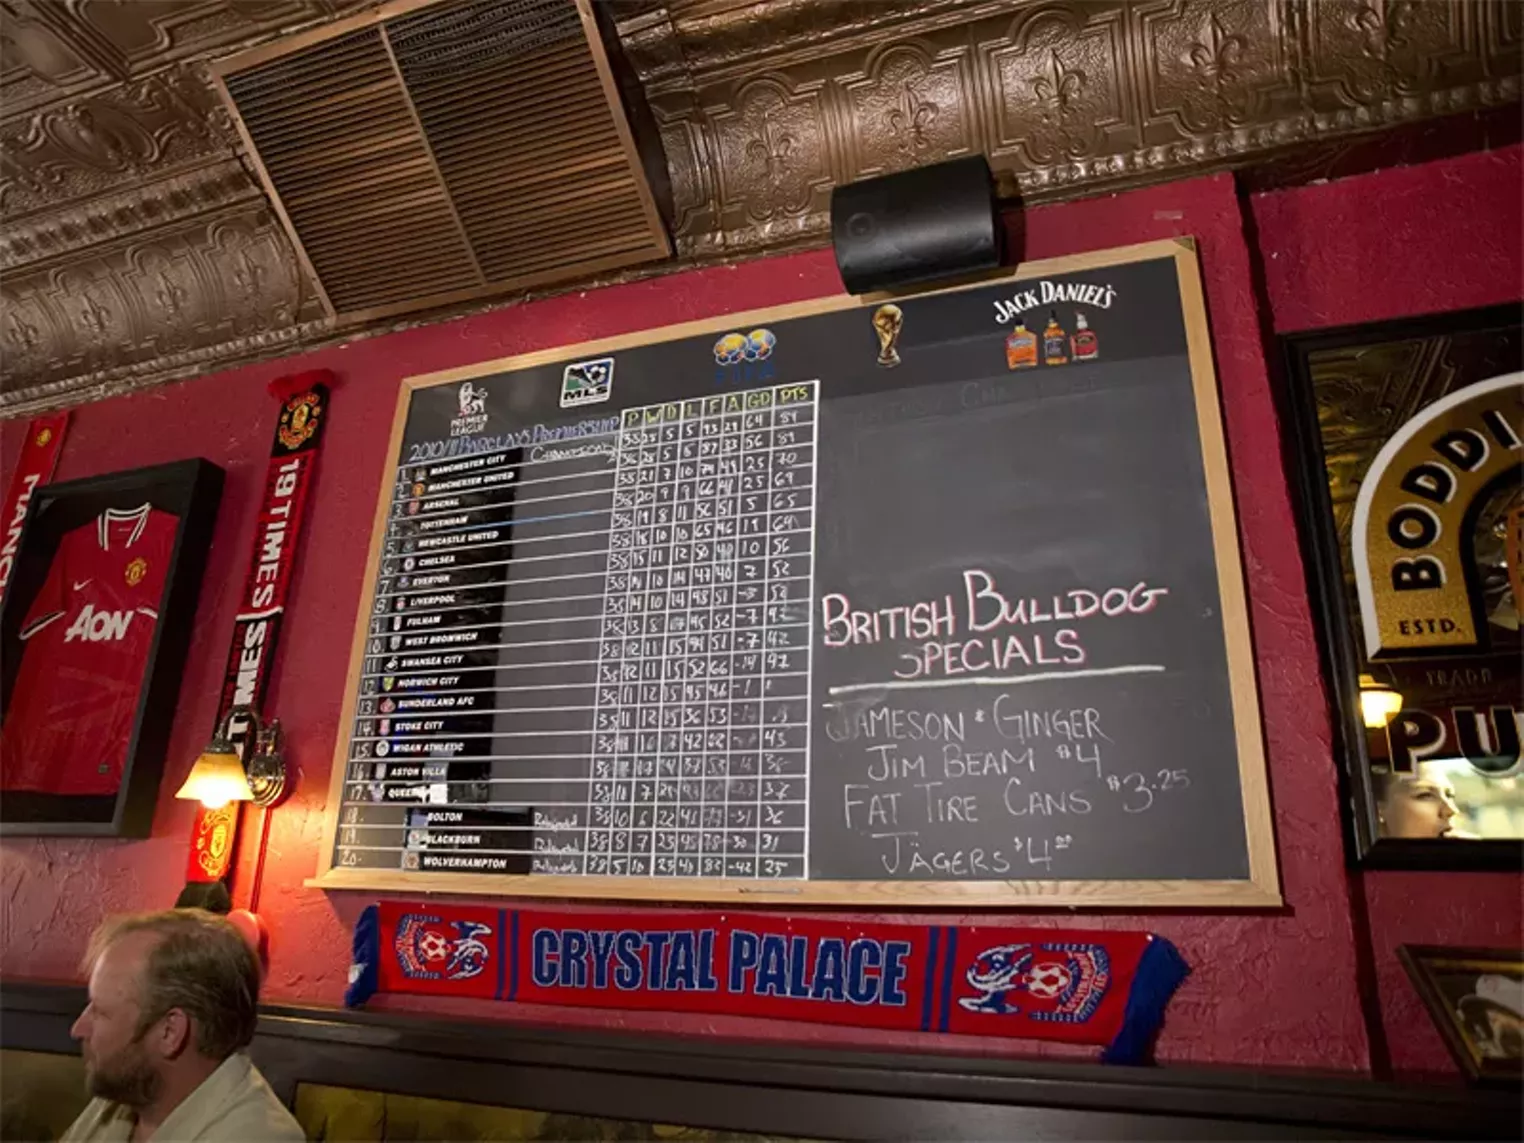 JACK DANIEL'S
PREMIER
LEAGUE
MLS
FIFA
2010/11 BARCLAYS PREMIERSHIP
P W D L F A GD PTS
1. MANCHESTER CITY CHAMPIONS 38 28 5 5 93 29 64 89
2. MANCHESTER UNITED 38 28 5 5 89 33 56 89
3. ARSENAL 38 21 7 10 74 49 25 70
4. TOTTENHAM 38 20 9 9 66 41 25 69
5. NEWCASTLE UNITED 38 19 8 11 56 51 5 65
6. CHELSEA 38 18 10 10 65 46 19 64
7. EVERTON 38 15 11 12 50 40 10 56
8. LIVERPOOL 38 14 10 14 47 40 7 52
9. FULHAM 38 14 10 14 48 51 -3 52
10. WEST BROMWICH 38 13 8 17 45 52 -7 47
11. SWANSEA CITY 38 12 11 15 44 51 -7 47
12. NORWICH CITY 38 12 11 15 52 66 -14 47
13. SUNDERLAND AFC 38 11 12 15 45 46 -1
14. STOKE CITY 38 11 12 15 36 53
15. WIGAN ATHLETIC 38 11 10 17 42 62 43
16. ASTON VILLA 38 17 14 37 53
17. QUEENS 38 10 7 21 37
18. BOLTON Relegated 38 10 6 22 46 77 -31 36
19. BLACKBURN Relegated 38 8 7 23 48 78 -30 31
20. WOLVERHAMPTON Relegated 38 5 10 23 40 82 -42 25
BRITISH BULLDOG
SPECIALS
JAMESON & GINGER
JIM BEAM $4
FAT TIRE CANS $3.25
JÄGERS $4.00
CRYSTAL PALACE
AON
19 TIMES
TIMES
MANCH
BODDI
ESTD.
PU